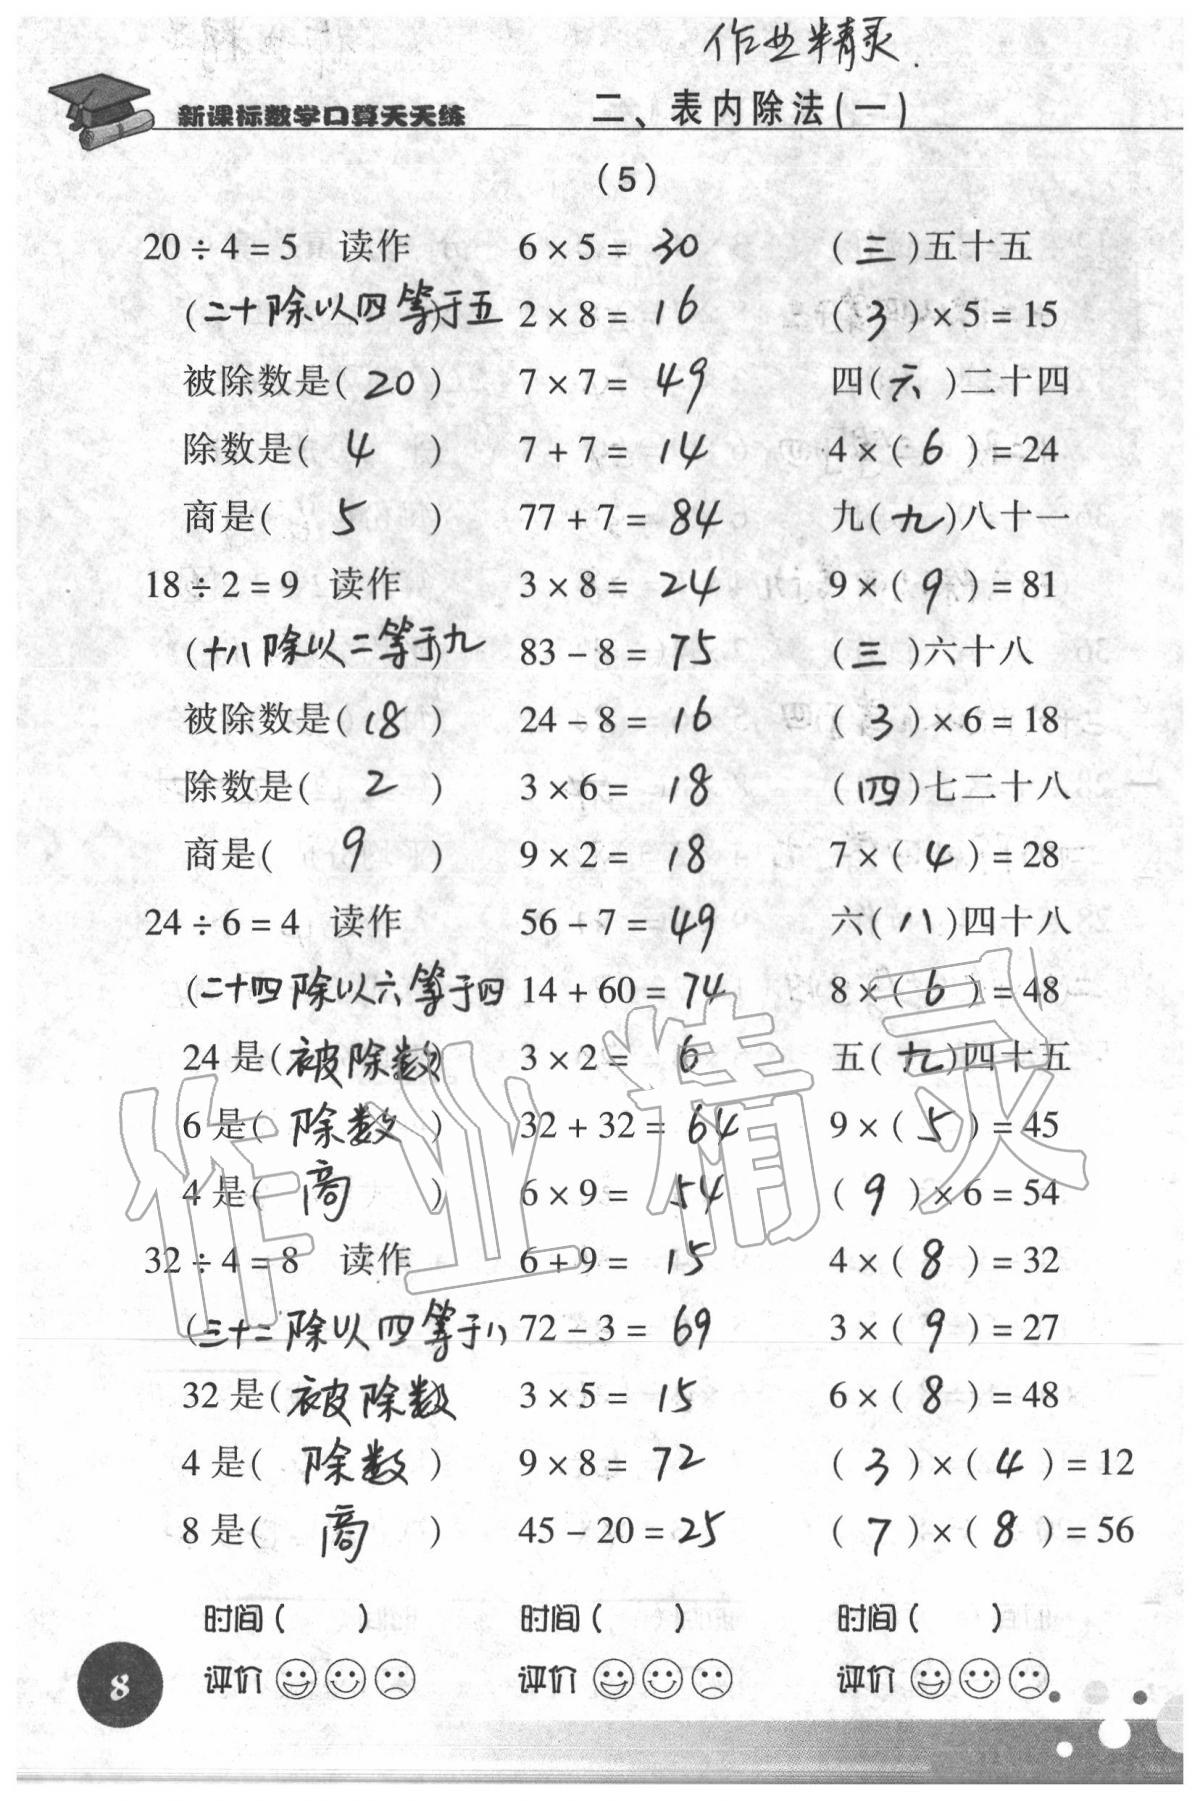 作业精灵.
新课标数学口算天天练
二、表内除法(一)
(5)
20÷4=5 读作
(二十除以四等于五)
被除数是(20)
除数是(4)
商是(5)
18÷2=9 读作
(十八除以二等于九)
被除数是(18)
除数是(2)
商是(9)
24÷6=4 读作
(二十四除以六等于四
24是(被除数)
6是(除数)
4是(商)
32÷4=8 读作
(三十二除以四等于八
32是(被除数
4是(除数)
8是(商)
时间( )
评价
6×5=30
2×8=16
7×7=49
7+7=14
77+7=84
3×8=24
83-8=75
24-8=16
3×6=18
9×2=18
56-7=49
14+60=74
3×2=6
32+32=64
6×9=54
6+9=15
72-3=69
3×5=15
9×8=72
45-20=25
时间( )
评价
(三)五十五
(3)×5=15
四(六)二十四
4×(6)=24
九(九)八十一
9×(9)=81
(三)六十八
(3)×6=18
(四)七二十八
7×(4)=28
六(八)四十八
8×(6)=48
五(九)四十五
9×(5)=45
(9)×6=54
4×(8)=32
3×(9)=27
6×(8)=48
(3)×(4)=12
(7)×(8)=56
时间( )
评价
8
作业精灵